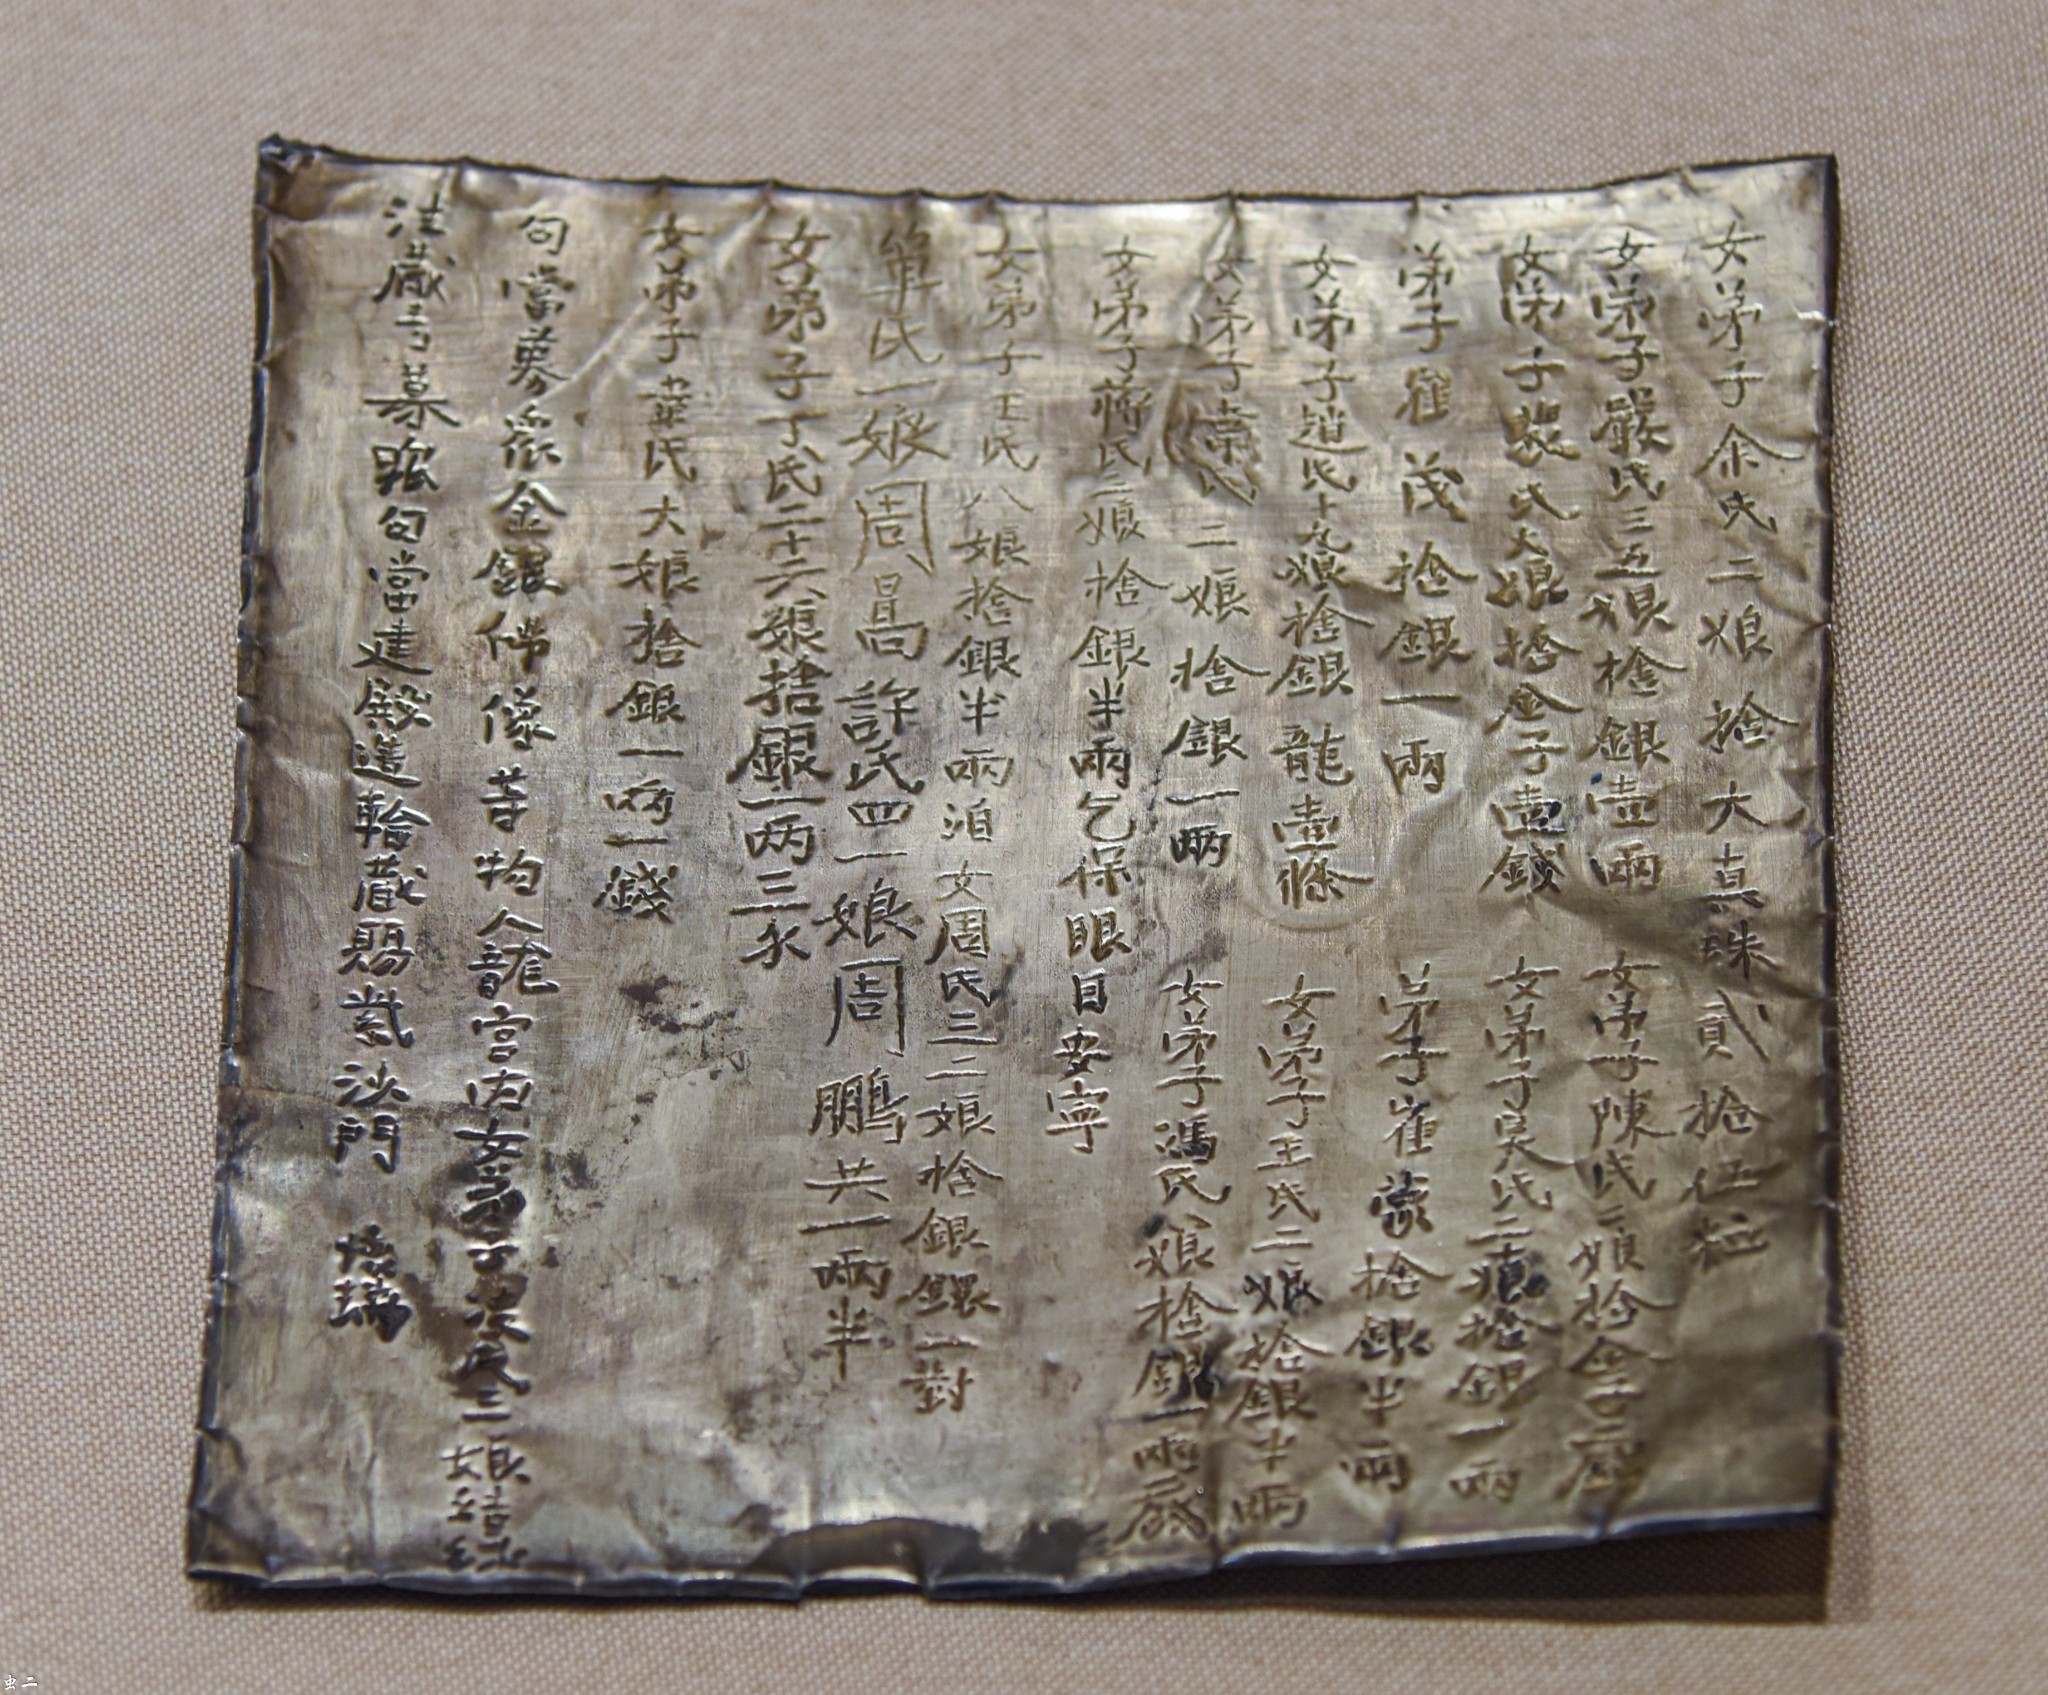 女弟子余氏二娘捨大真珠貳拾伍粒
女弟子嚴氏三五娘捨銀壹兩 女弟子陳氏二娘捨金子二
女弟子裴氏大娘捨金子壹錢 女弟子吴氏二娘捨銀一兩
弟子崔茂捨銀一兩 弟子崔 捨銀半兩
女弟子趙氏十九娘捨銀龍壹條 女弟子王氏二娘捨銀半兩
女弟子 氏二娘捨銀一兩 女弟子馮氏 娘捨銀一兩
女弟子蔣氏三娘捨銀半兩乞保眼目安寧
女弟子王氏八娘捨銀半兩洎女周氏三二娘捨銀鐶一對
單氏一娘周暠許氏四一娘周鵬共一兩半
女弟子丁氏二十六娘捨銀一两三
女弟子華氏大娘捨銀一两一錢
句當募眾金銀佛像等物人龍宫内女弟子 氏三娘
法蔵寺募 句當建殿造輪蔵賜紫沙門 懷
虫二